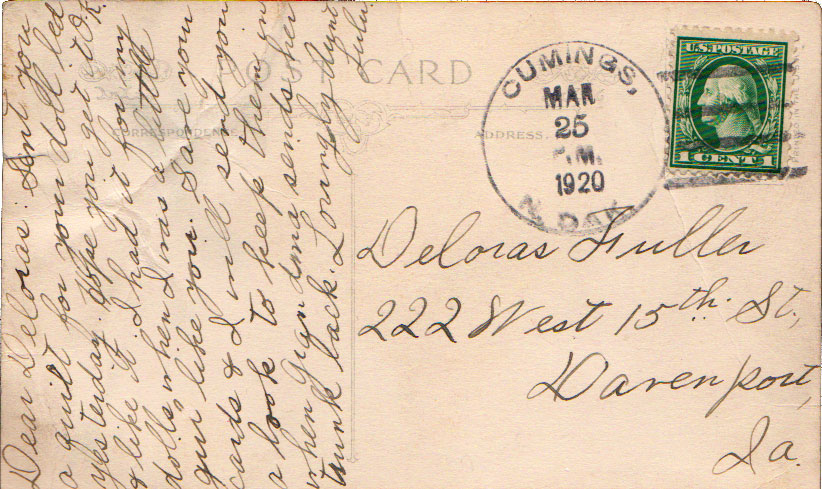 Dear Deloras: Sent you
a quilt for your doll bed
yesterday. Hope you get it O.K.
& like it. I had it for my
dolls when I was a little
girl like you. Save your
cards & I will send you
a book to keep them in
when grandma sends her
trunk back. Lovingly Aunt
Lulu.
POST CARD
CORRESPONDENCE
ADDRESS
CUMINGS,
MAR
25
P.M.
1920
N. DAK
U.S. POSTAGE
1 CENT 1
Deloras Fuller
222 West 15th. St.,
Davenport,
Ia.